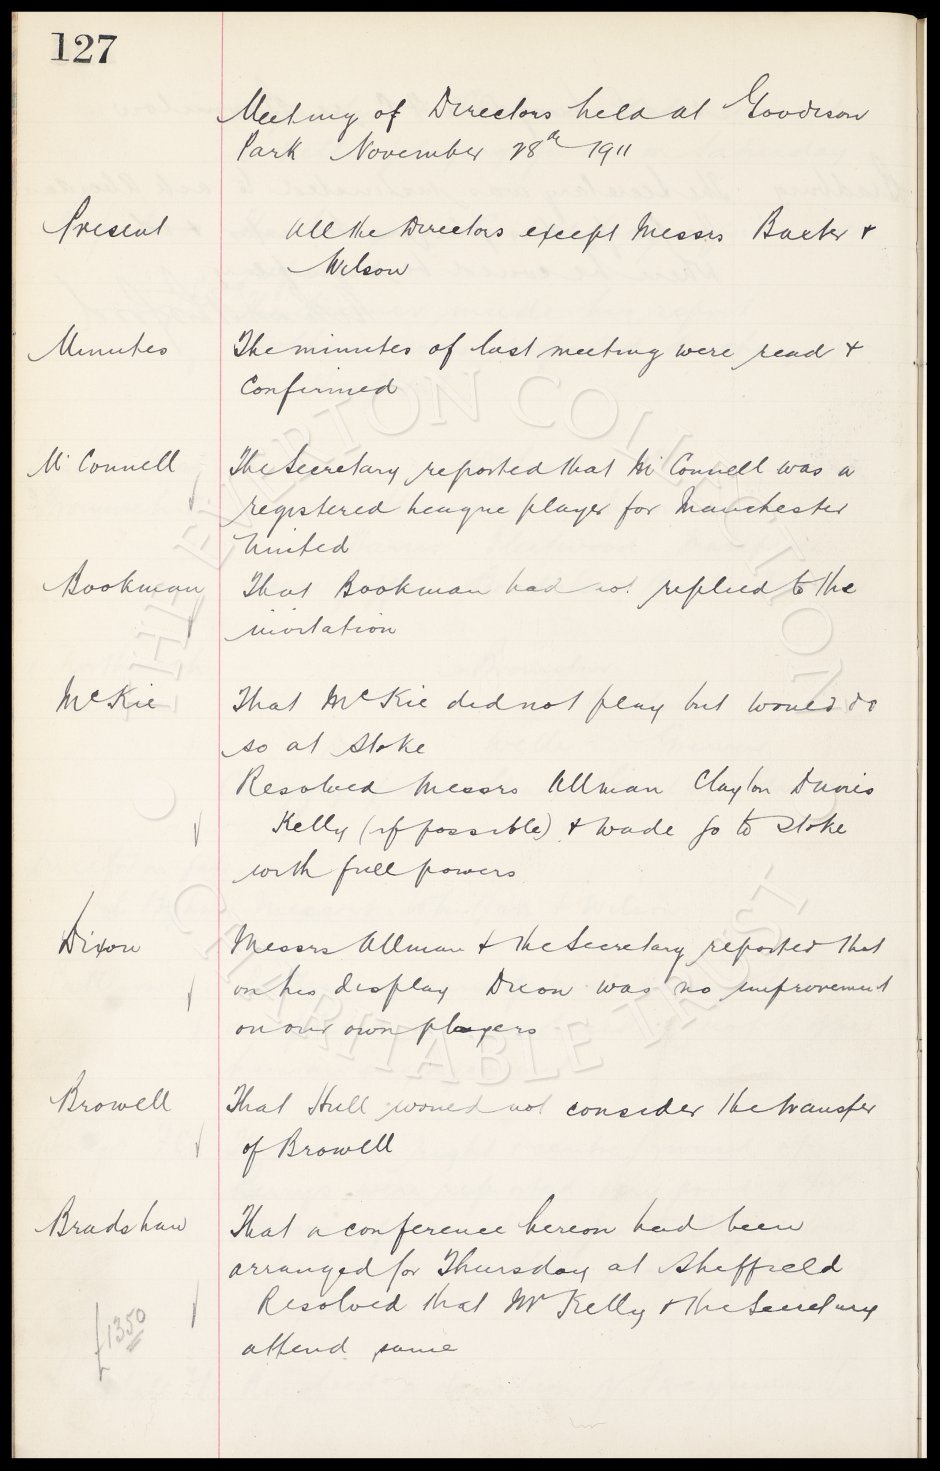 127
Meeting of Directors held at Goodison
Park November 28th 1911
Present All the Directors except Messrs Baxter +
Wilson
Minutes The minutes of last meeting were read +
Confirmed
Mc Connell The Secretary reported that Mc Connell was a
registered League player for Manchester
United
Bookman That Bookman had not replied to the
invitation
McKie That McKie did not play but would do
so at Stoke
Resolved Messrs Allman Clayton Davies
Kelly (if possible) + Wade go to Stoke
with full powers
Dixon Messrs Allman + the Secretary reported that
on his display Dixon was no improvement
on our own players
Browell That Hull would not consider the transfer
of Browell
Bradshaw That a conference hereon had been
arranged for Thursday at Sheffield
Resolved that Mr Kelly + the Secretary
£1350 attend same
THE EVERTON COLLECTION
CHARITABLE TRUST